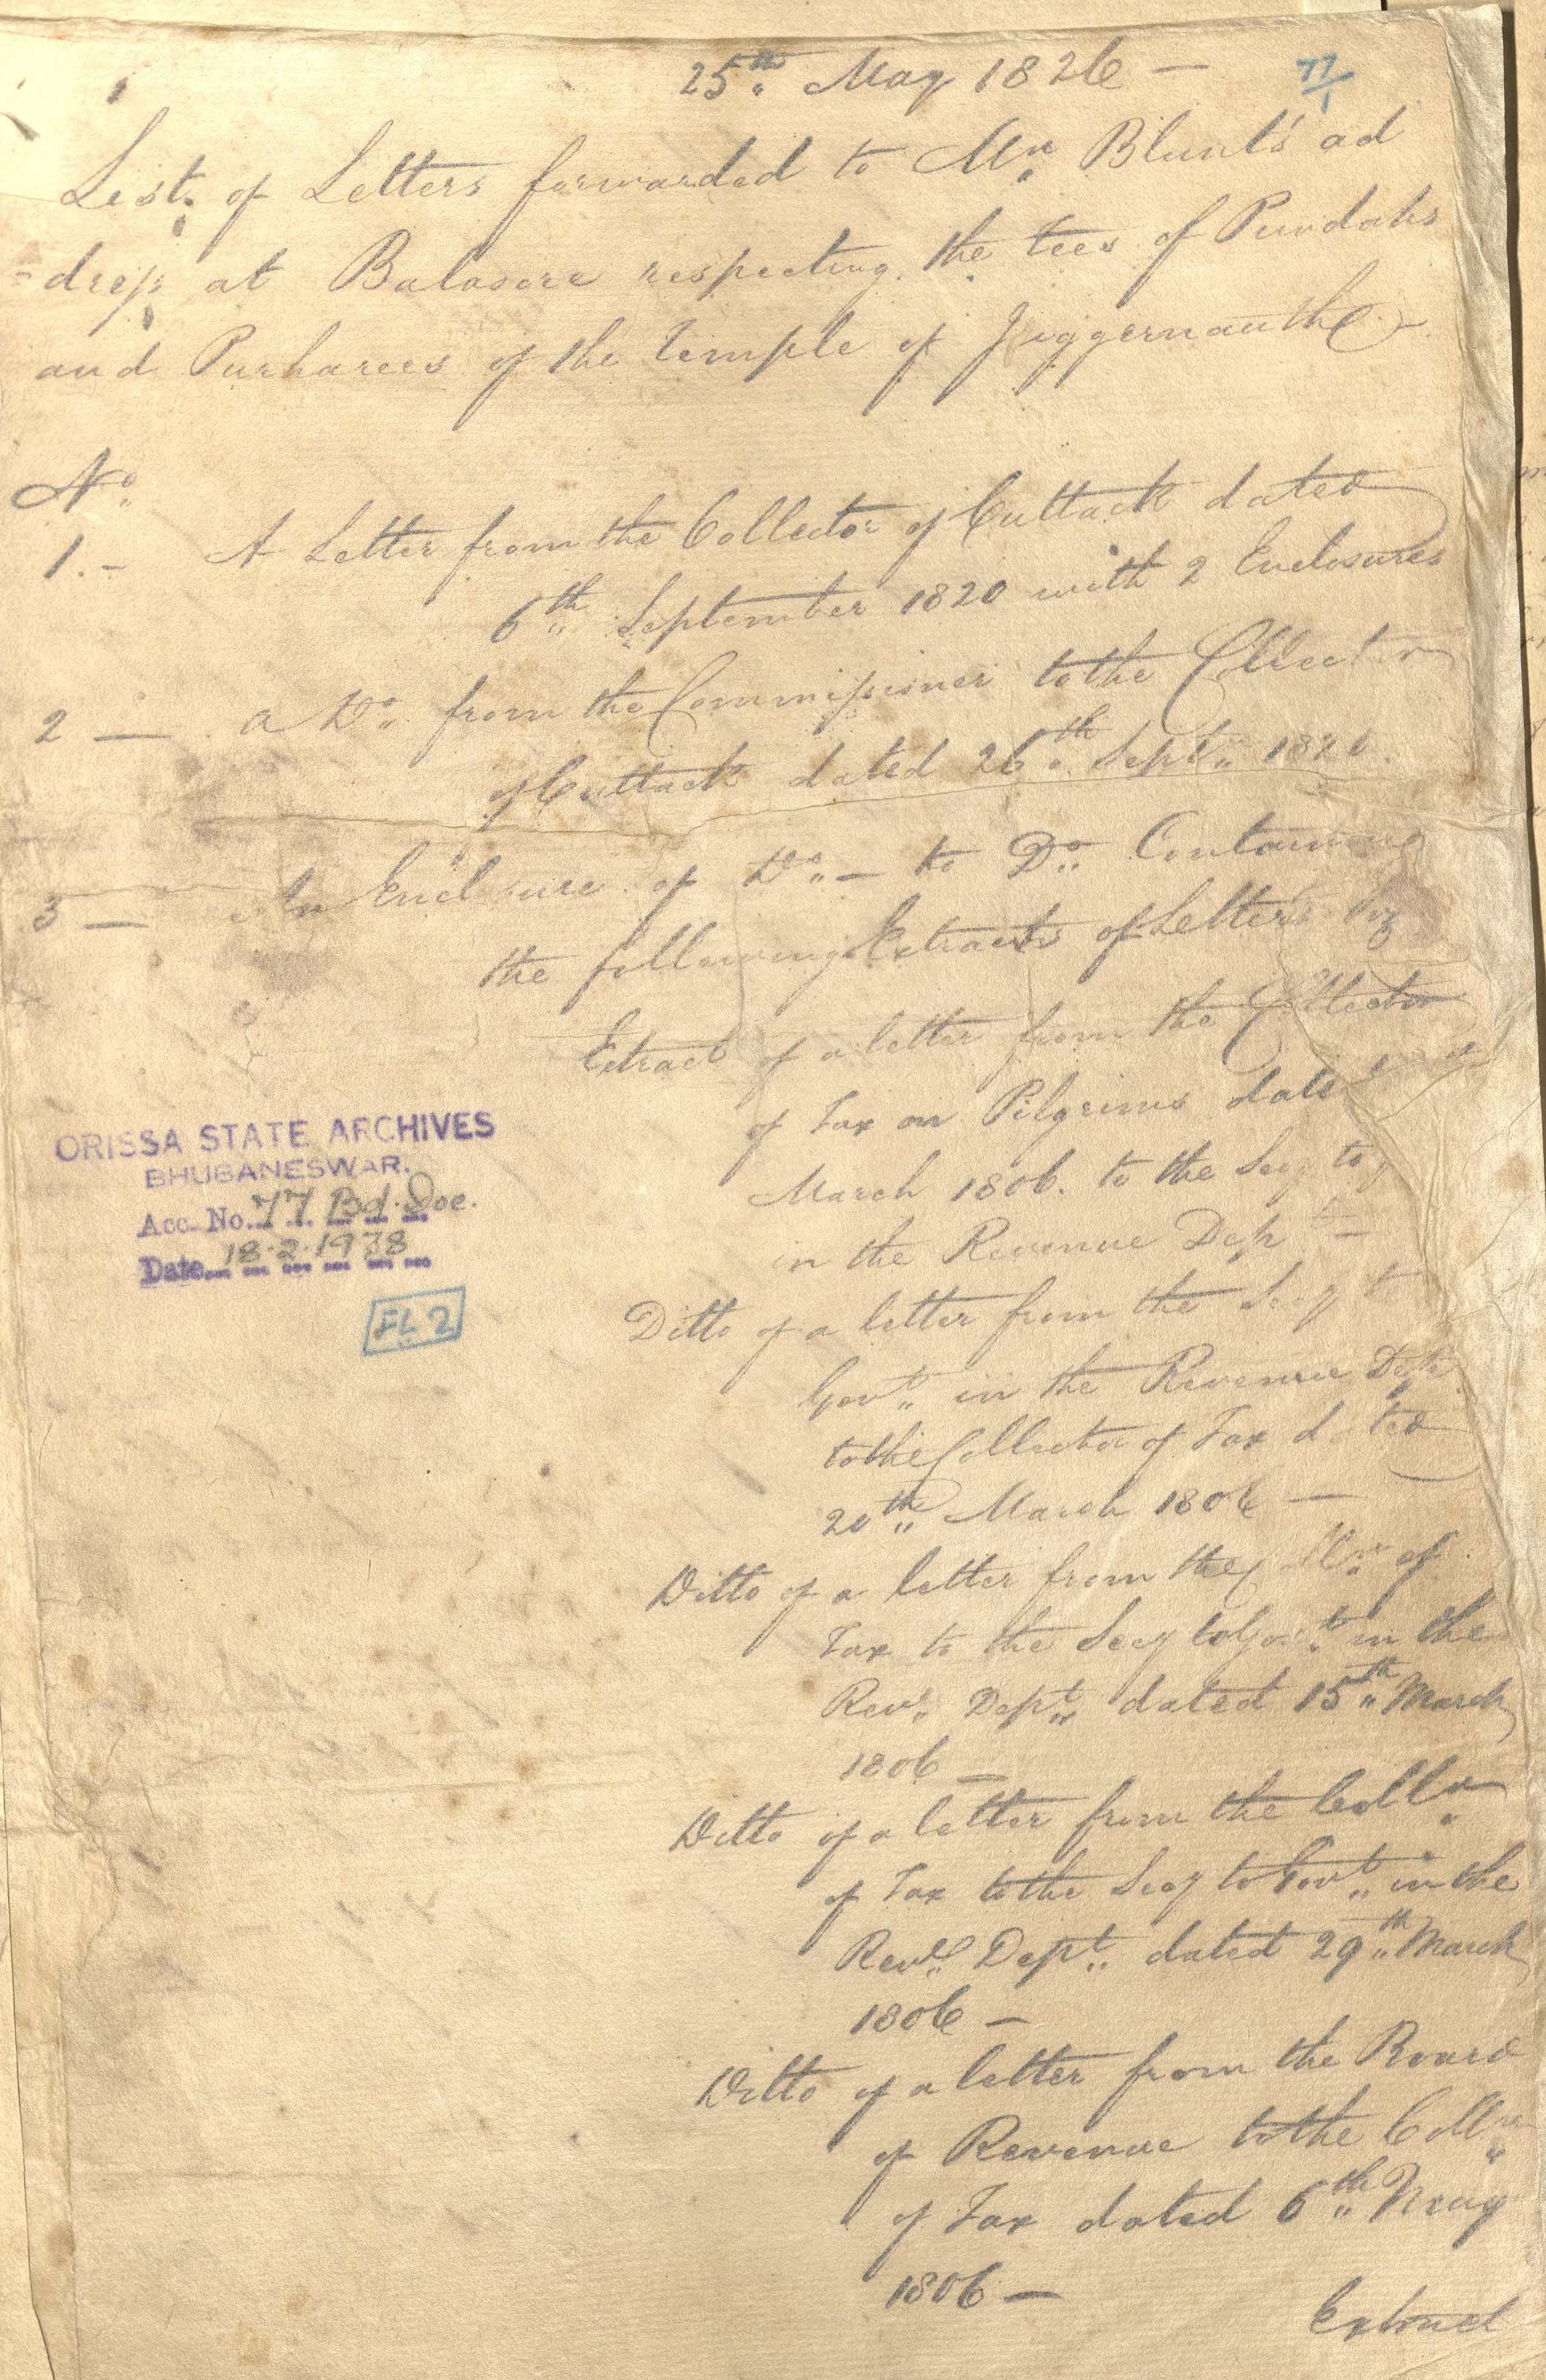 25th May 1826 —
77/1
List of Letters forwarded to Mr Blunt's ad
=drep at Balasore respecting the fees of Pundahs
and Purharees of the temple of Juggernauth
No
1. - A Letter from the Collector of Cuttack dated
6th September 1820 with 2 Enclosures
2 — a Do from the Commissioner to the Collector
of Cuttack dated 26th Sept. 1820.
3 — An Enclosure of Do — to Do Containing
the following Extracts of Letters Viz
Extract of a letter from the Collector
of Tax on Pilgrims dated
March 1806. to the Secy to
in the Revenue Dept —
Ditto of a letter from the Secy to
Govt in the Revenue Dept
to the Collector of Tax dated
20th March 1806 —
Ditto of a letter from the Collr of
Tax to the Secy to Govt in the
Revd Dept dated 15th March
1806 —
Ditto of a letter from the Collr
of Tax to the Secy to Govt in the
Revd Dept dated 29th March
1806 —
Ditto of a letter from the Board
of Revenue to the Collr
of Tax dated 6th May
1806 —
Extract
ORISSA STATE ARCHIVES
BHUBANESWAR.
Acc. No. 77 Bd. Doc.
Date 18.2.1938
FL 2